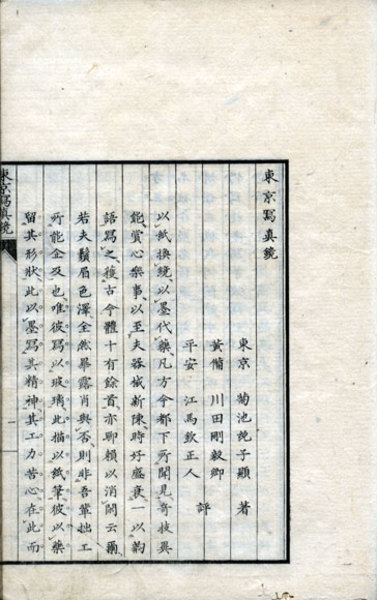 東京寫真鏡
東京 菊池純子顯 著
黃備 川田剛毅卿
平安 江馬欽正人 評
以紙換鏡以墨代藥凡方今都下所聞見奇技異
能賞心樂事以至夫器械新陳時好盛衰一以韵
語寫之獲古今體十有餘首亦聊賴以消閑云爾
若夫鬚眉色澤全然畢露肖與否則非吾輩拙工
所能企及也唯彼寫以玻璃此描以紙筆彼以藥
留其形狀此以墨寫其精神其工力苦心在此而
東京寫真鏡